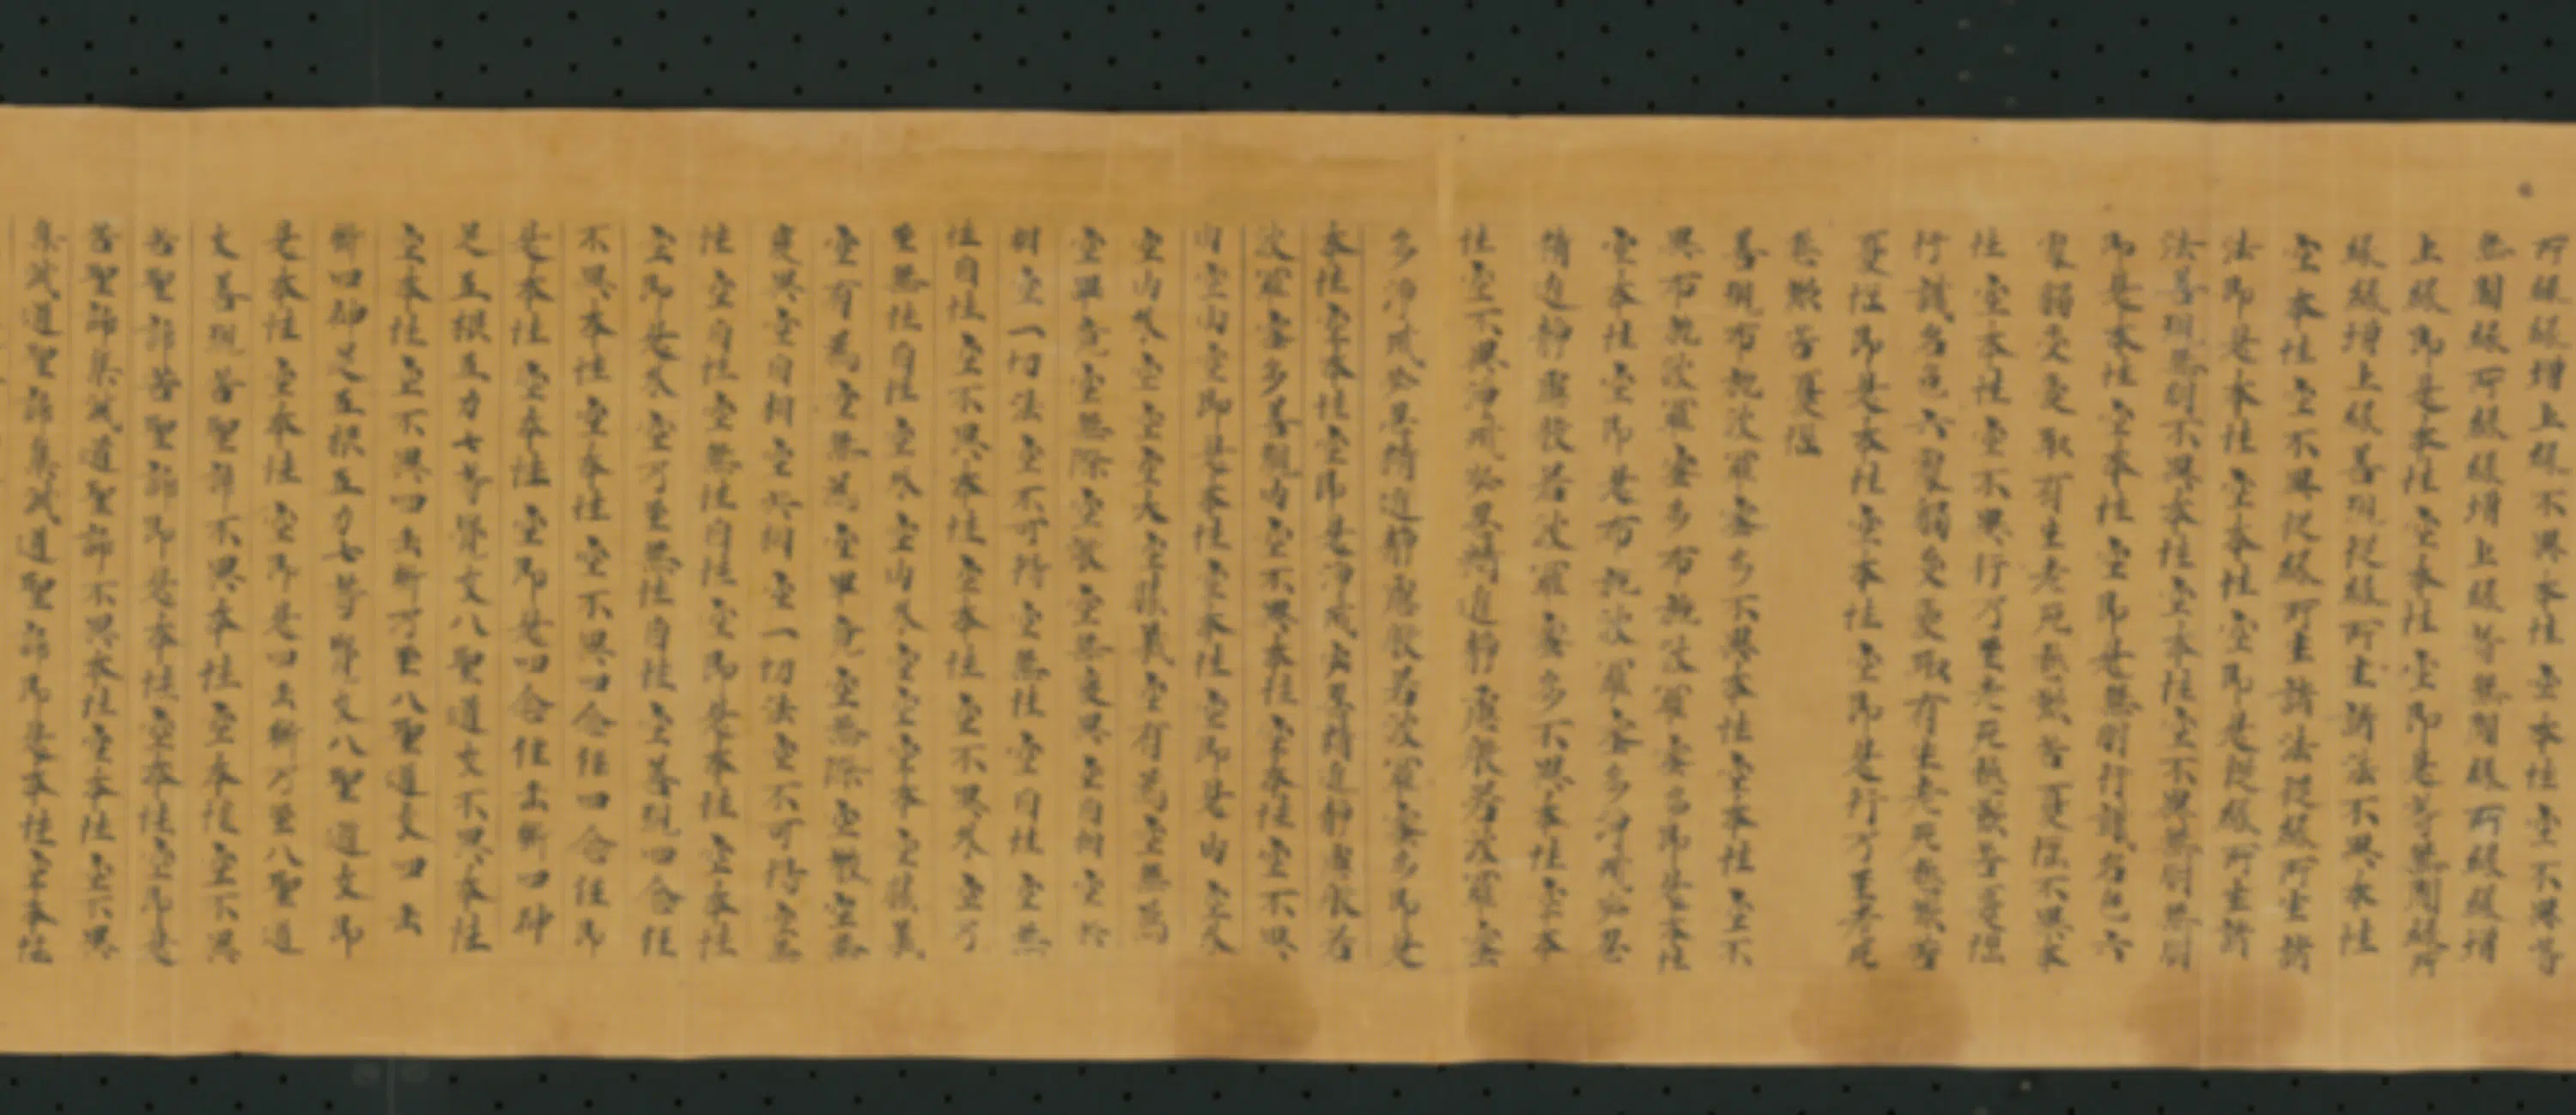 所緣緣增上緣不異本性空本性空不異等
無間緣所緣緣增上緣等無間緣所緣緣增
上緣即是本性空本性空即是等無間緣所
緣緣增上緣善現從緣所生諸法不異本性
空本性空不異從緣所生諸法從緣所生諸
法即是本性空本性空即是從緣所生諸
法善現無明不異本性空本性空不異無明無明
即是本性空本性空即是無明行識名色六
處觸受愛取有生老死愁歎苦憂惱不異本
性空本性空不異行乃至老死愁歎苦憂惱
行識名色六處觸受愛取有生老死愁歎苦
憂惱即是本性空本性空即是行乃至老死
愁歎苦憂惱
善現布施波羅蜜多不異本性空本性空不
異布施波羅蜜多布施波羅蜜多即是本性
空本性空即是布施波羅蜜多淨戒安忍
精進靜慮般若波羅蜜多不異本性空本
性空不異淨戒安忍精進靜慮般若波羅蜜
多淨戒安忍精進靜慮般若波羅蜜多即是
本性空本性空即是淨戒安忍精進靜慮般若
波羅蜜多善現內空不異本性空本性空不異
內空內空即是本性空本性空即是內空外
空內外空空空大空勝義空有為空無為
空畢竟空無際空散空無變異空自相空共
相空一切法空不可得空無性空自性空無
性自性空不異本性空本性空不異外空乃
至無性自性空外空內外空空空大空勝義
空有為空無為空畢竟空無際空散空無
變異空自相空共相空一切法空不可得空無
性空自性空無性自性空即是本性空本性
空即是外空乃至無性自性空善現四念住
不異本性空本性空不異四念住四念住即
是本性空本性空即是四念住正斷四神
足五根五力七等覺支八聖道支不異本性
空本性空不異四正斷乃至八聖道支四正
斷四神足五根五力七等覺支八聖道支即
是本性空本性空即是四正斷乃至八聖道
支善現苦聖諦不異本性空本性空不異
苦聖諦苦聖諦即是本性空本性空即是
苦聖諦集滅道聖諦不異本性空本性空不異
集滅道聖諦集滅道聖諦即是本性空本性